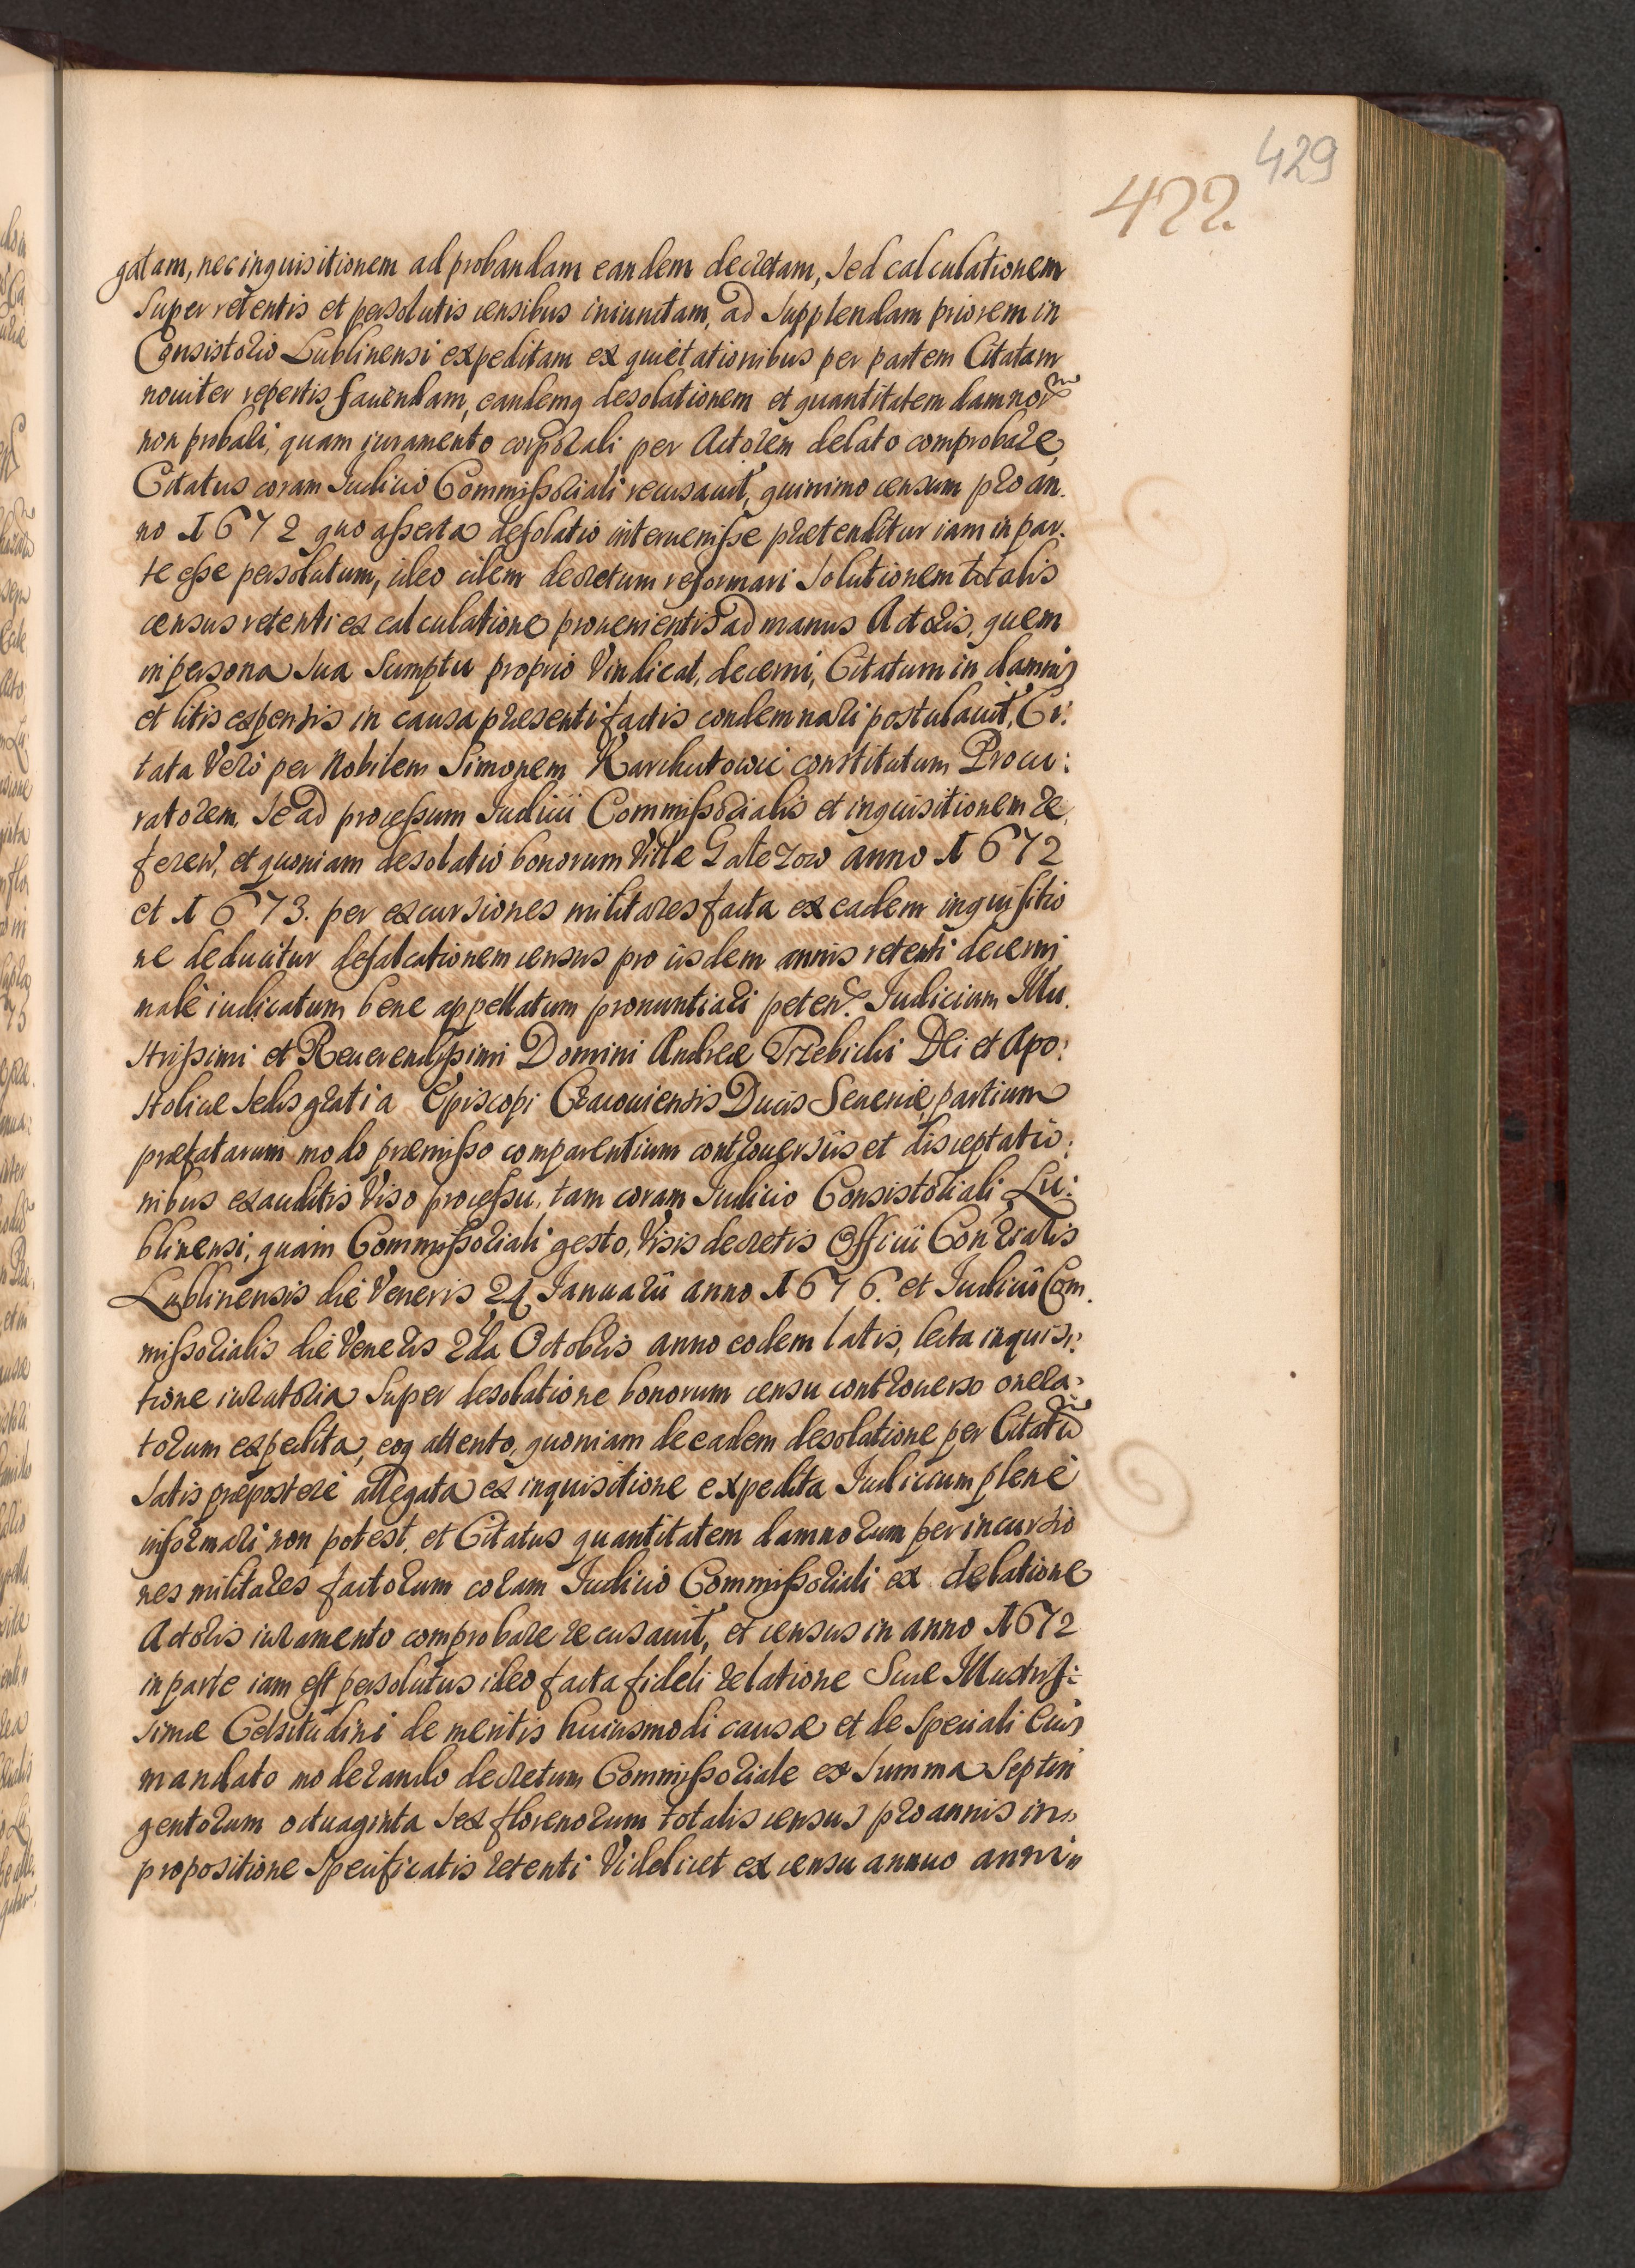 429
422
gatam, nec inquisitionem ad probandam eandem decretam, sed calculationem
super retentis et persolutis censibus iniunctam, ad supplendam priorem in
Consistorio Lublinensi expeditam ex quietationibus per partem Citatam
nouiter repertis fauendam, eandemq desolationem et quantitatem damnor
non probali, quam iuramento corporali per Actorem delato comprobare,
Citatus coram Iudicio Commissoriali recusauit, quinimo censum pro an.
no 1672 quo asserta desolatio interuenisse praetenditur iam in par.
te esse persolutum, ideo idem decretum reformari solutionem totalis
census retenti ex calculatione prouenientis ad manus Actoris, quem
in persona sua sumptu proprio Vindicat, decerni, Citatum in damnis
et litis expensis in causa praesenti factis condemnari postulauit, Ci:
tata Vero per Nobilem Simonem Karchutowic constitutum Procu:
ratorem, se ad processum Iudicii Commissorialis et inquisitionem re,
feren, et quoniam desolatio bonorum Villae Gaterow anno 1672
et 1673. per excursiones militares facta ex eadem inquisitio
ne deducitur defalcationem census pro iisdem annis retenti decerni
malè iudicatum bene appellatum pronuntiari peten. Iudicium Illu.
strissimi et Reuerendissimi Domini Andreae Trzebicki Dei et Apo:
stolicae sedis gratia Episcopi Cracouiensis Ducis Seueriae, partium
praefatarum modo praemisso comparentium controuersiis et disceptatio:
nibus exauditis Viso processu, tam coram Iudicio Consistoriali Lu:
blinensi, quam Commissoriali gesto, Visis decretis Officii Conralis
Lublinensis die Veneris 24 Ianuarii anno 1676. et Iudicii Com.
missorialis die Veneris 2da Octobris anno eodem latis, lecta inquisi:
tione iuratoria super desolatione bonorum censu controuerso onera:
torum expedita, eoq attento, quoniam de eadem desolatione per Citatu
satis praepostere allegata ex inquisitione expedita Iudicium plenè
informari non potest, et Citatus quantitatem damnorum per incursio
nes militares factorum coram Iudicio Commissoriali ex delatione
Actoris iuramento comprobare recusauit, et census in anno 1672
in parte iam est persolutus ideo facta fideli relatione Suae Illustris:
simae Celsitudini de meritis huiusmodi causae et de speciali Eius
mandato moderando decretum Commissoriale ex summa septin
gentorum octuaginta sex florenorum totalis census pro annis in
propositione specificatis retenti Videlicet ex censu annuo anni